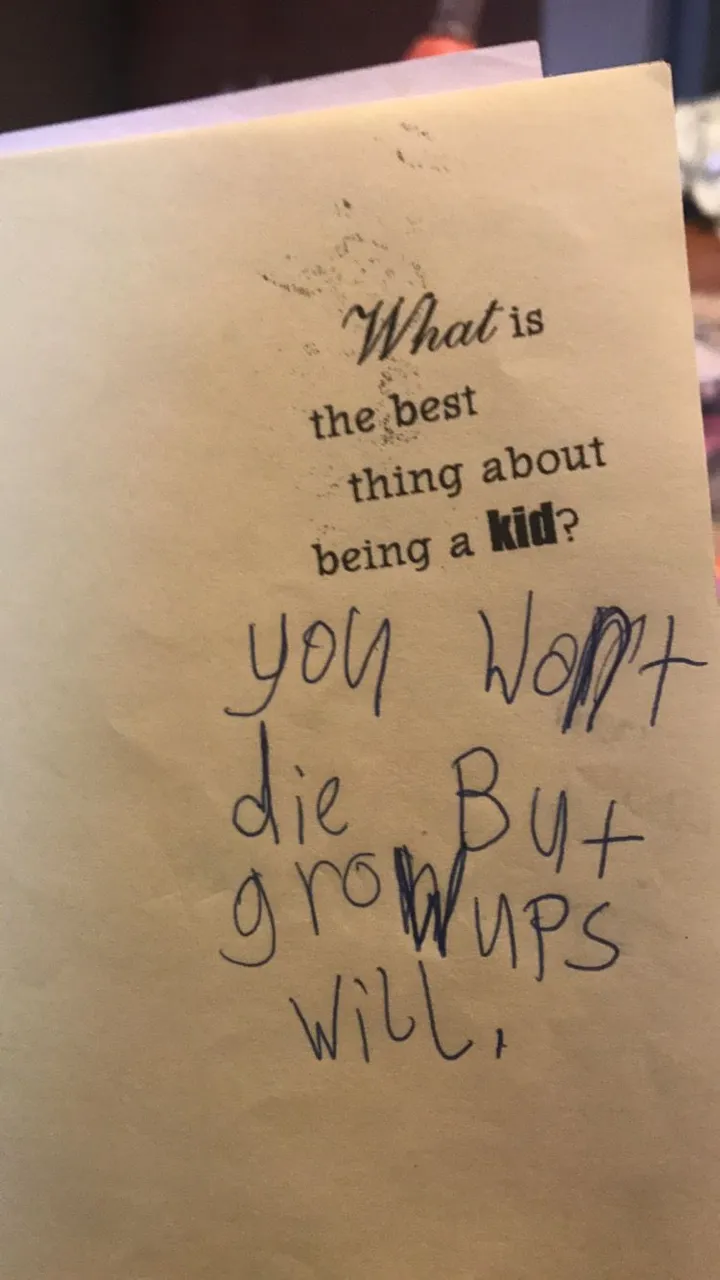 What is
the best
thing about
being a kid?
you Won't
die But
growups
will.